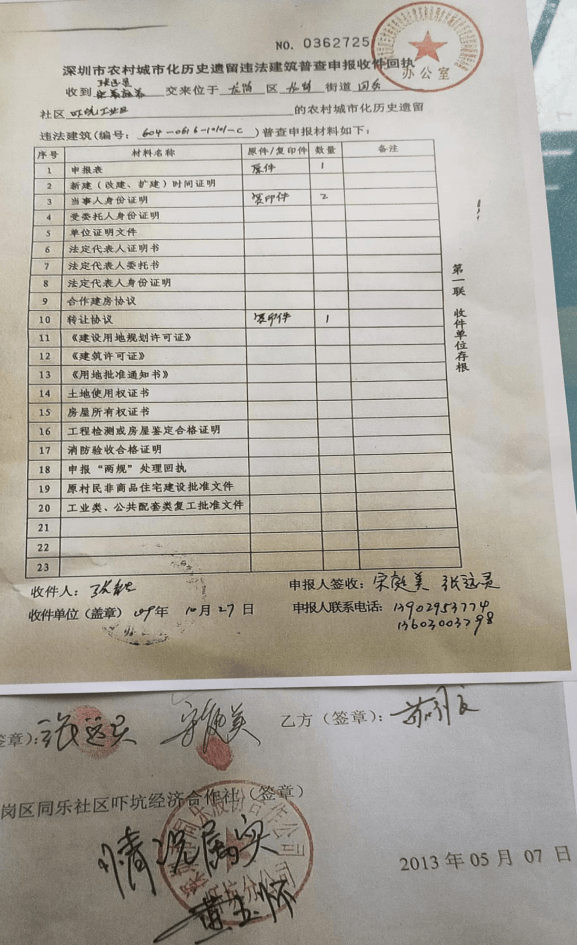 NO. 0362725
深圳市农村城市化历史遗留违法建筑普查申报收件回执
办公室
收到 张远灵 宋庭美 交来位于 龙岗 区 龙岗 街道 同乐
社区 吓坑工业区 的农村城市化历史遗留
违法建筑(编号: 604-0616-10101-C )普查申报材料如下:
序号 材料名称 原件/复印件 数量 备注
1 申报表 原件 1
2 新建(改建、扩建)时间证明
3 当事人身份证明 复印件 2
4 受委托人身份证明
5 单位证明文件
6 法定代表人证明书
7 法定代表人委托书
8 法定代表人身份证明
9 合作建房协议
10 转让协议 复印件 1
11 《建设用地规划许可证》
12 《建筑许可证》
13 《用地批准通知书》
14 土地使用权证书
15 房屋所有权证书
16 工程检测或房屋鉴定合格证明
17 消防验收合格证明
18 申报“两规”处理回执
19 原村民非商品住宅建设批准文件
20 工业类、公共配套类复工批准文件
21
22
23
第一联 收件单位存根
收件人:
申报人签收: 宋庭美 张远灵
收件单位(盖章) 09年 10月 27日
申报人联系电话: 13902953774
13603003798
签章): 张远灵 宋庭美 乙方(签章):
岗区同乐社区吓坑经济合作社(签章)
情况属实
黄玉怀
2013 年 05 月 07 日